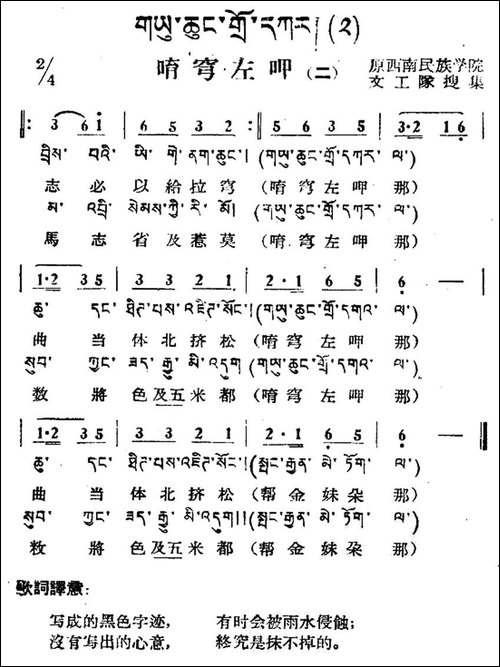 གཡུ་ཆུང་གྲོ་དཀར། (༢)
唷穹左呷 (二)
原西南民族学院
文工隊搜集
2/4
3 6 i | 6 5 3 2 :‖ 5 6 3 5 | 3·2 1 6 |
བྲིས་ པའི་ ཡི་ གེ་ ནག་ཆུང་། (གཡུ་ཆུང་གྲོ་དཀར་ ལ་)
志 必 以 給 拉 穹 (唷 穹 左 呷 那)
མ་ འབྲི་ སེམས་ཀྱི་ རི་ མོ། (གཡུ་ཆུང་གྲོ་དཀར་ ལ་)
馬 志 省 及 惹 莫 (唷 穹 左 呷 那)
1·2 3 5 | 3 3 2 1 | 2·1 6 5 | 6 — |
ཆུ་ དང་ ཐིཊ་པས་འཇིཊ་སོང་། (གཡུ་ཆུང་གྲོ་དཀར་ ལ་)
曲 当 体 北 挤 松 (唷 穹 左 呷 那)
སུབ་ ཀྱང་ ཟད་ རྒྱུ་ མི་འདུག (གཡུ་ཆུང་གྲོ་དཀར་ ལ་)
数 將 色 及五 米 都 (唷 穹 左 呷 那)
1·2 3 5 | 3 3 2 1 | 2·1 6 5 | 6 — ‖
ཆུ་ དང་ ཐིཊ་པས་འཇིཊ་སོང་། (སྤང་རྒྱན་ མེ་ ཏོག་ ལ་)
曲 当 体 北 挤 松 (帮 金 妹 朶 那)
སུབ་ ཀྱང་ ཟད་ རྒྱུ་ མི་འདུག།། (སྤང་རྒྱན་ མེ་ ཏོག་ ལ་)
敉 將 色 及五 米 都 (帮 金 妹 朶 那)
歌詞譯意:
写成的黑色字迹, 有时会被雨水侵蝕;
沒有写出的心意, 終究是抹不掉的。